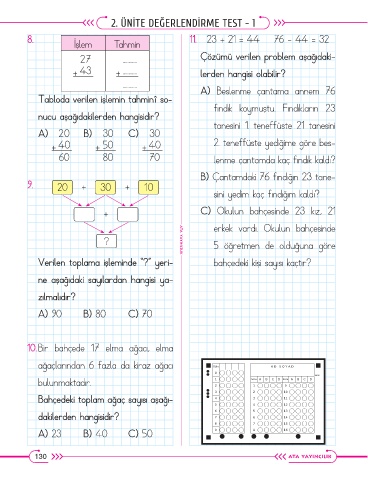 2. ÜNİTE DEĞERLENDİRME TEST - 1
8.
İşlem Tahmin
27 ........
+ 43 + ........
........
Tabloda verilen işlemin tahminî so-
nucu aşağıdakilerden hangisidir?
A) 20 B) 30 C) 30
+ 40 + 50 + 40
60 80 70
9.
20 + 30 + 10
+
?
Verilen toplama işleminde "?" yeri-
ne aşağıdaki sayılardan hangisi ya-
zılmalıdır?
A) 90 B) 80 C) 70
10. Bir bahçede 17 elma ağacı, elma
ağaçlarından 6 fazla da kiraz ağacı
bulunmaktadır.
Bahçedeki toplam ağaç sayısı aşağı-
dakilerden hangisidir?
A) 23 B) 40 C) 50
11. 23 + 21 = 44 76 - 44 = 32
Çözümü verilen problem aşağıdaki-
lerden hangisi olabilir?
A) Beslenme çantama annem 76
fındık koymuştu. Fındıkların 23
tanesini 1. teneffüste 21 tanesini
2. teneffüste yediğime göre bes-
lenme çantamda kaç fındık kaldı?
B) Çantamdaki 76 fındığın 23 tane-
sini yedim kaç fındığım kaldı?
C) Okulun bahçesinde 23 kız, 21
erkek vardı. Okulun bahçesinde
5 öğretmen de olduğuna göre
bahçedeki kişi sayısı kaçtır?
ADI SOYADI
130
ATA YAYINCILIK